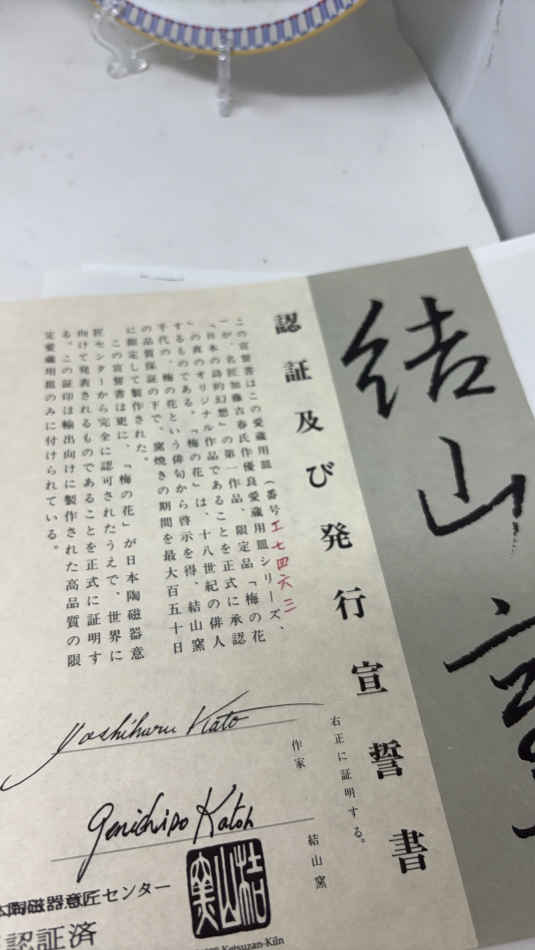 結山
認証及び発行宣誓書
この宣誓書はこの愛蔵用皿（番号エ七四六三
）が、名匠加藤吉春氏作優良愛蔵用皿シリーズ、
「日本の詩的幻想」の第一作品、限定品「梅の花
」の真のオリジナル作品であることを正式に承認
するものである。「梅の花」は、十八世紀の俳人
千代の、梅の花という俳句から啓示を得、結山窯
の品質保証の下で、窯焼きの期間を最大百五十日
に限定して製作された。
この宣誓書は更に、「梅の花」が日本陶磁器意
匠センターから完全に認可されたうえで、世界に
向けて発表されるものであることを正式に証明す
る。この証印は輸出向けに製作された高品質の限
定愛蔵用皿のみに付けられている。
右正に証明する。
Yoshiharu Kato
作家
Genichiro Katoh
結山窯
本陶磁器意匠センター
認証済
Ketsuzan-Kiln